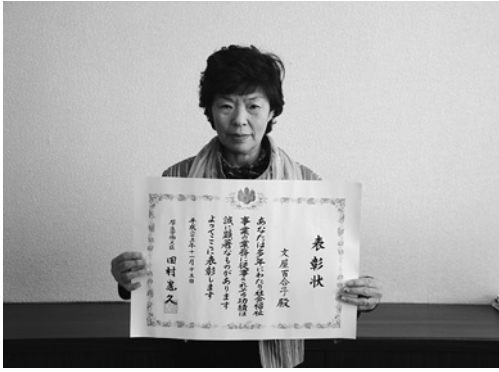 表彰状
文屋百合子殿
あなたは多年にわたり社会福祉
事業の業務に従事されその功績は
誠に顕著なものがあります
よってここに表彰します
平成二十三年十一月十五日
厚生労働大臣